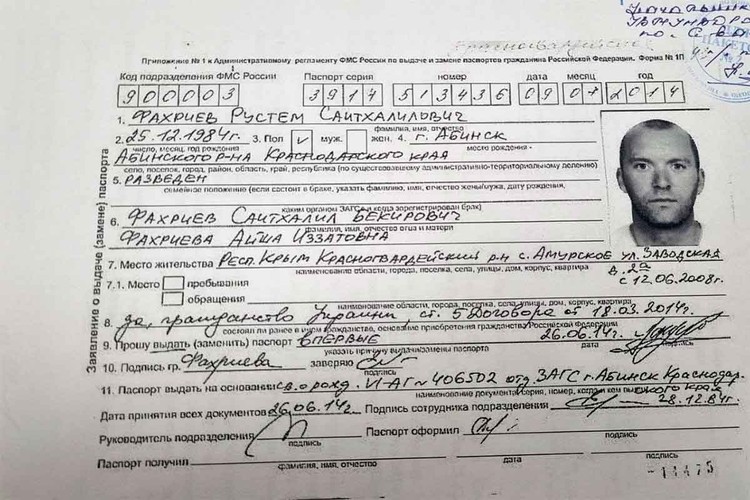 Начальник
по
Приложение № 1 к Административному регламенту ФМС России по выдаче и замене паспортов гражданина Российской Федерации. Форма № 1П
Код подразделения ФМС России Паспорт серия номер дата месяц год
900003 3914 513436 09 07 2014
1. Фахриев Рустем Саитхалилович
фамилия, имя, отчество
2. 25.12.1984г. 3. Пол v муж. жен. 4. г. Абинск
число, месяц, год рождения место рождения -
Абинского р-на Краснодарского края
село, поселок, город, район, область, край, республика (по существовавшему административно-территориальному делению)
5. разведен
семейное положение (если состоит в браке, указать фамилию, имя, отчество жены/мужа, дату рождения,
каким органом ЗАГСа и когда зарегистрирован брак)
6. Фахриев Саитхалил Бекирович
фамилия, имя, отчество отца и матери
Фахриева Айша Иззатовна
7. Место жительства Респ. Крым Красногвардейский р-н с. Амурское ул. Заводская
наименование области, города, поселка, села, улицы, дом, корпус, квартира
д. 2а
7.1. Место пребывания с 12.06.2008г.
обращения
наименование области, города, поселка, села, улицы, дом, корпус, квартира
8. да, гражданство Украины, ст. 5 Договора от 18.03.2014г.
состоял ли ранее в ином гражданстве, основание приобретения гражданства Российской Федерации
9. Прошу выдать (заменить) паспорт впервые 26.06.14г.
указать причину выдачи/замены паспорта дата подпись
10. Подпись гр. Фахриева заверяю
подпись
11. Паспорт выдать на основании св. о рожд. И-АГ № 406502 отд. ЗАГС г. Абинск Краснодар.
наименование документа, серия, номер, когда и кем выдан
ского края
Дата принятия всех документов 26.06.14г Подпись сотрудника подразделения 28.12.84г.
подпись
Руководитель подразделения Паспорт оформил
подпись подпись
Паспорт получил
фамилия, имя, отчество дата подпись
Заявление о выдаче (замене) паспорта